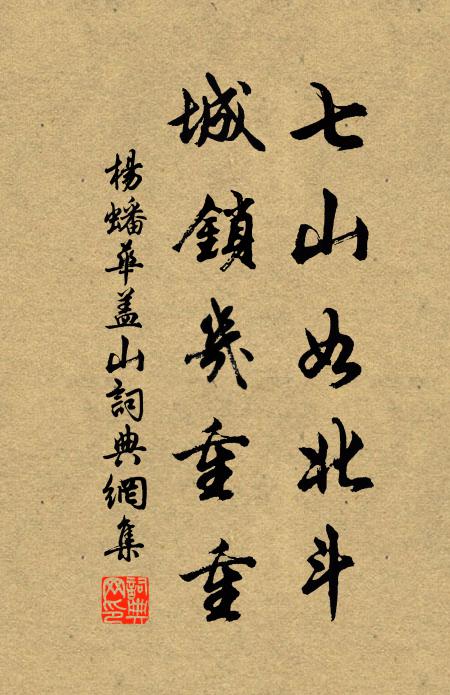 七山如北斗
城鎖幾重重
楊蟠華蓋山詞典網集
詞典網印